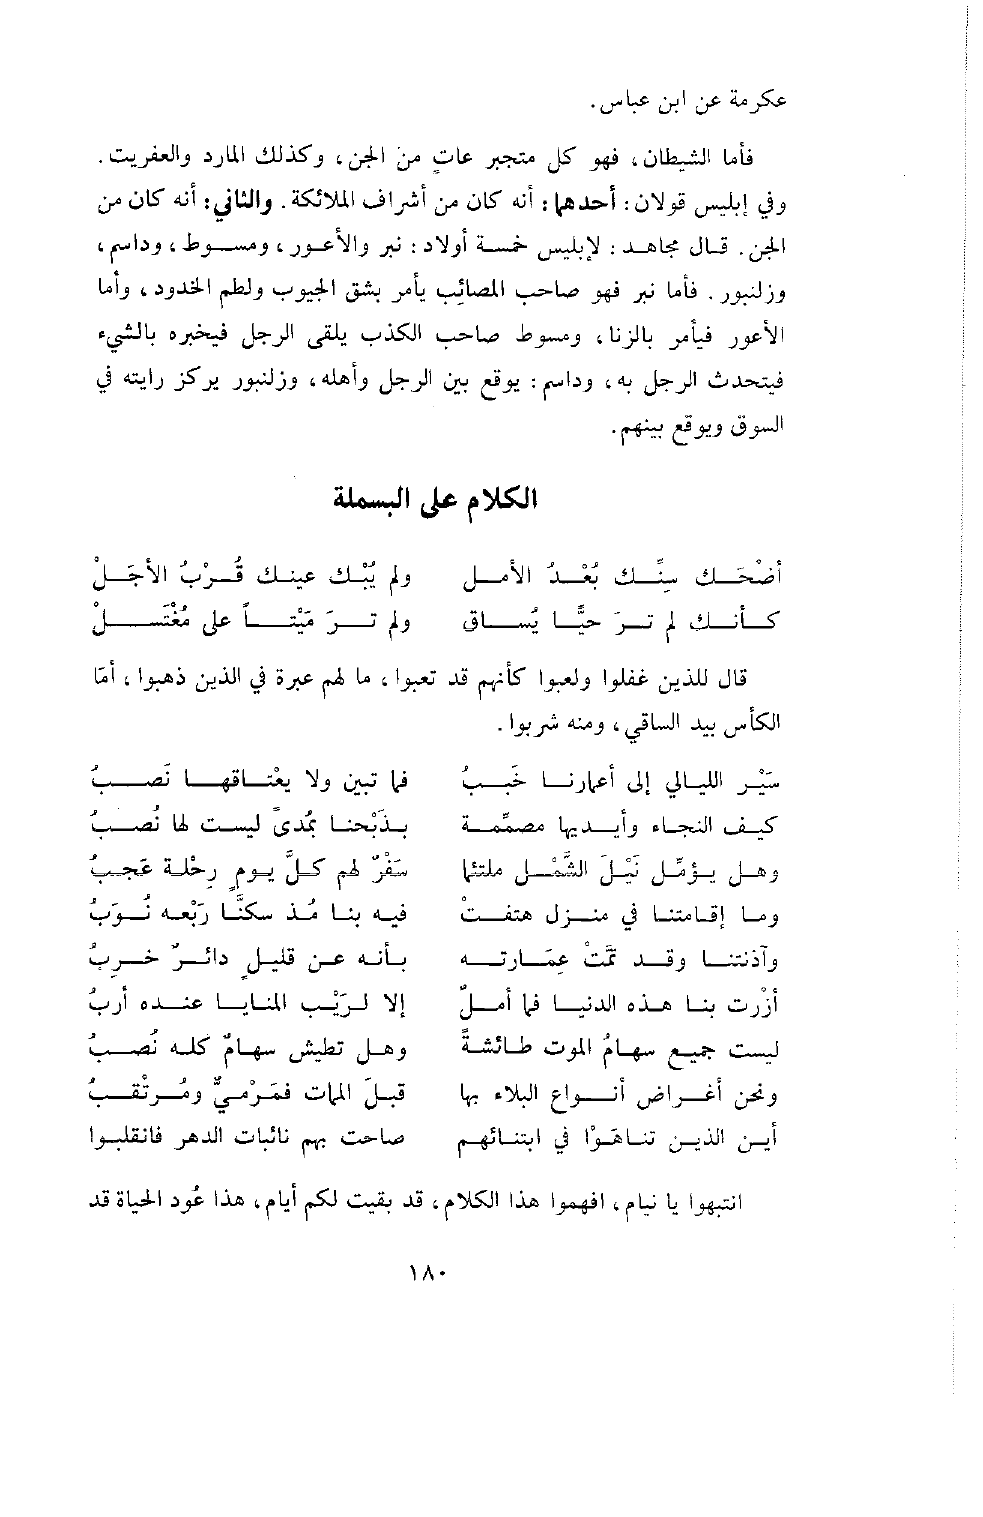 عكرمة عن ابن عباس.
فأما الشيطان، فهو كل متجبر عاتٍ من الجن، وكذلك المارد والعفريت.
وفي إبليس قولان: أحدهما: أنه كان من أشراف الملائكة. والثاني: أنه كان من
الجن. قال مجاهد: لإبليس خمسة أولاد: ثبر والأعور، ومسوط، وداسم،
وزلنبور. فأما ثبر فهو صاحب المصائب يأمر بشق الجيوب ولطم الخدود، وأما
الأعور فيأمر بالزنا، ومسوط صاحب الكذب يلقى الرجل فيخبره بالشيء
فيتحدث الرجل به، وداسم: يوقع بين الرجل وأهله، وزلنبور يركز رايته في
السوق ويوقع بينهم.
الكلام على البسملة
أضْحَك سِنَّك بُعْدُ الأمل ولم يُبْك عينك قُرْبُ الأجَلْ
كأنك لم تر حيًّا يُساق ولم تر مَيْتاً على مُغْتَسلْ
قال للذين غفلوا ولعبوا كأنهم قد تعبوا، ما لهم عبرة في الذين ذهبوا، أمّا
الكأس بيد الساقي، ومنه شربوا.
سَيْر الليالي إلى أعمارنا خَبَبُ فما تبين ولا يعْتاقها نَصَبُ
كيف النجاء وأيديها مصمِّمة بذَبْحنا بمُدىً ليست لها نُصُبُ
وهل يؤمِّل نَيْلَ الشَّمْل ملتئما سَفْرٌ لهم كلَّ يومٍ رِحْلة عَجَبُ
وما إقامتنا في منزل هتفتْ فيه بنا مُذ سكنَّا رَبْعه نُوَبُ
وآذنتنا وقد تمّتْ عمارته بأنه عن قليلٍ داثرٌ خربُ
أزْرت بنا هذه الدنيا فما أملٌ إلا لرَيْب المنايا عنده أربُ
ليست جميع سهامُ الموت طائشةً وهل تطيش سهامٌ كله نُصبُ
ونحن أغراض أنواع البلاء بها قبلَ الممات فمَرْميٌّ ومُرتْقبُ
أين الذين تناهَوْا في ابتنائهم صاحت بهم نائبات الدهر فانقلبوا
انتبهوا يا نيام، افهموا هذا الكلام، قد بقيت لكم أيام، هذا عُود الحياة قد
١٨٠